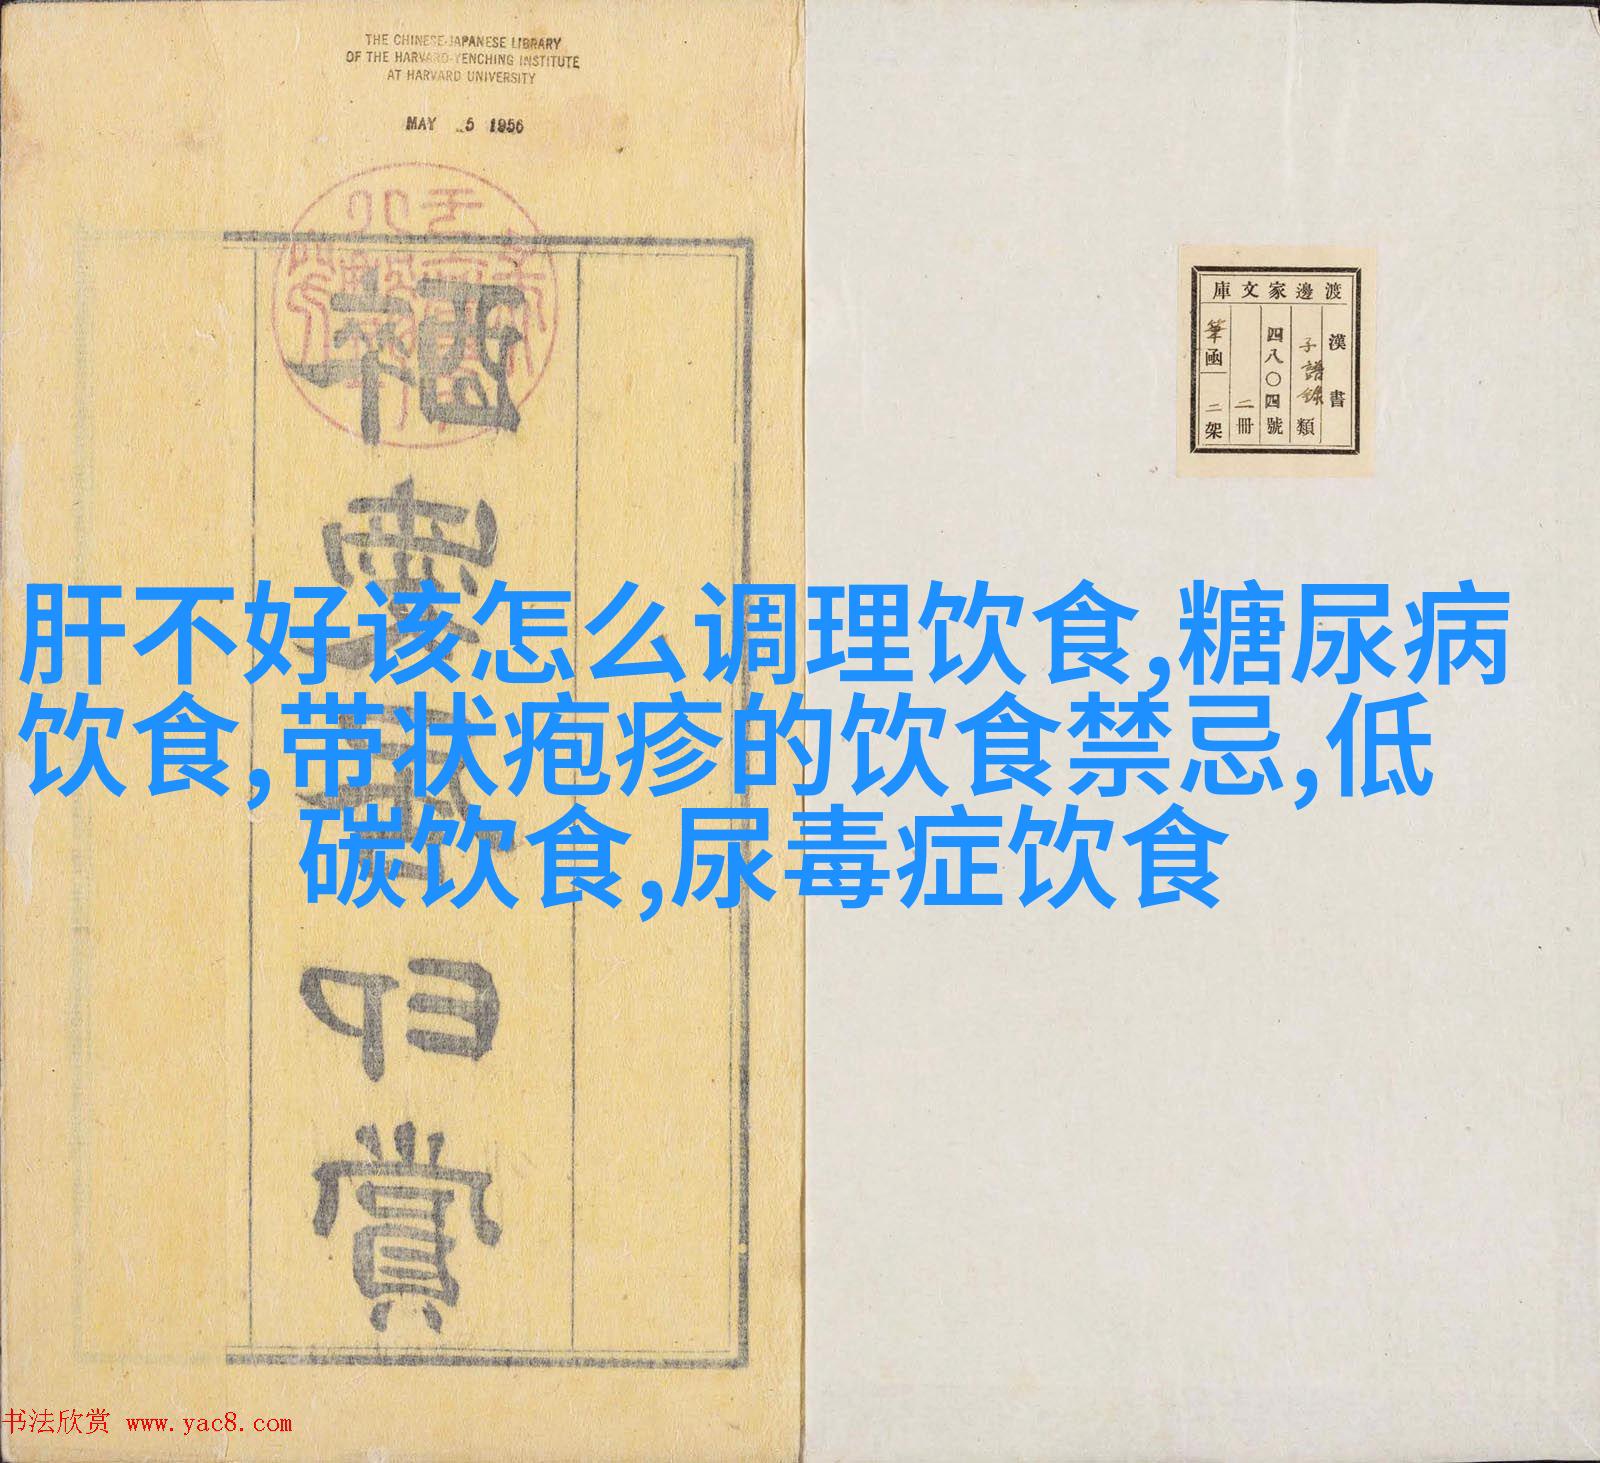 THE CHINESE-JAPANESE LIBRARY
OF THE HARVARD-YENCHING INSTITUTE
AT HARVARD UNIVERSITY
MAY 5 1956
渡邊家文庫
漢書
子譜錄類
四八〇四號
二冊
筆函二架
肝不好该怎么调理饮食,糖尿病
饮食,带状疱疹的饮食禁忌,低
碳饮食,尿毒症饮食
印賞
书法欣赏 www.yac8.com